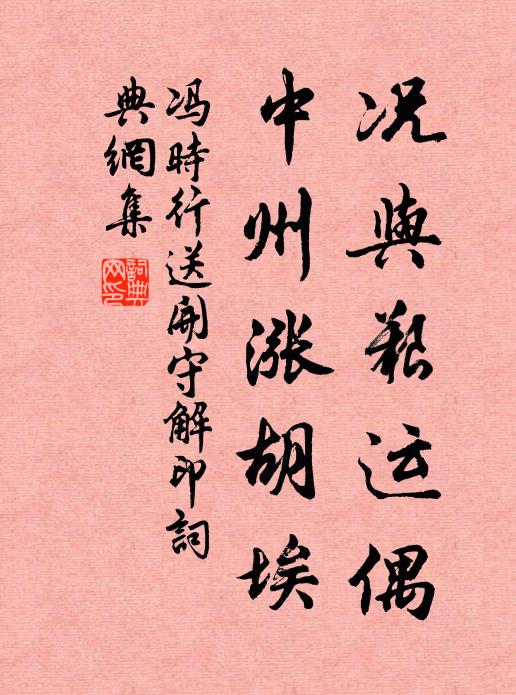 况與艱运偶
中州涨胡埃
冯時行送開守解印詞
典網集
詞典
网印